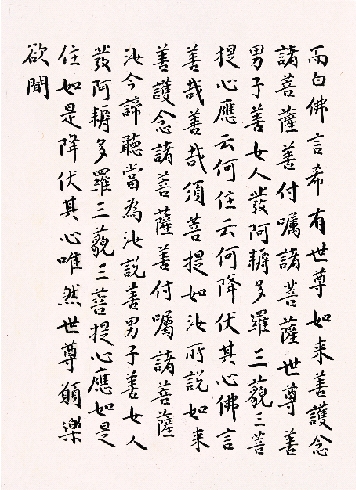 而白佛言希有世尊如来善護念
諸菩薩善付囑諸菩薩世尊善
男子善女人發阿耨多羅三藐三菩
提心應云何住云何降伏其心佛言
善哉善哉須菩提如汝所説如来
善護念諸菩薩善付囑諸菩薩
汝今諦聽當為汝説善男子善女人
發阿耨多羅三藐三菩提心應如是
住如是降伏其心唯然世尊願樂
欲聞